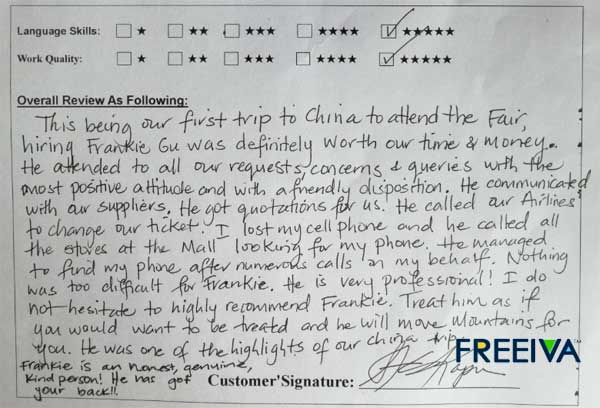 Language Skills: ★ ★★ ★★★ ★★★★ ★★★★★
Work Quality: ★ ★★ ★★★ ★★★★ ★★★★★
Overall Review As Following:
This being our first trip to China to attend the Fair,
hiring Frankie Gu was definitely worth our time & money.
He attended to all our requests, concerns & queries with the
most positive attitude and with a friendly disposition. He communicated
with our suppliers. He got quotations for us. He called our Airlines
to change our ticket. I lost my cell phone and he called all
the stores at the Mall looking for my phone. He managed
to find my phone after numerous calls on my behalf. Nothing
was too difficult for Frankie. He is very professional! I do
not hesitate to highly recommend Frankie. Treat him as if
you would want to be treated and he will move Mountains for
you. He was one of the highlights of our China trip
Frankie is an honest, genuine,
kind person! He has got
your back!!
Customer'Signature:
FREEIVA